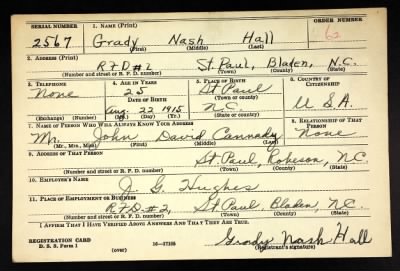 SERIAL NUMBER 1. NAME (Print) ORDER NUMBER
2567 Grady Nash Hall
(First) (Middle) (Last)
2. ADDRESS (Print)
R.F.D #2 St. Paul, Bladen, N.C.
(Number and street or R. F. D. number) (Town) (County) (State)
3. TELEPHONE 4. AGE IN YEARS 5. PLACE OF BIRTH 6. COUNTRY OF CITIZENSHIP
None 25 St Paul
DATE OF BIRTH (Town or county)
Aug. 22 1915 N.C. U S A.
(Exchange) (Number) (Mo.) (Day) (Yr.) (State or country)
7. NAME OF PERSON WHO WILL ALWAYS KNOW YOUR ADDRESS 8. RELATIONSHIP OF THAT PERSON
Mr. John David Cannady None
(Mr., Mrs., Miss) (First) (Middle) (Last)
9. ADDRESS OF THAT PERSON
St Paul, Robeson, N.C.
(Number and street or R. F. D. number) (Town) (County) (State)
10. EMPLOYER'S NAME
J. G. Hughes
11. PLACE OF EMPLOYMENT OR BUSINESS
R.F.D-#2, St Paul, Bladen, N.C.
(Number and street or R. F. D. number) (Town) (County) (State)
I AFFIRM THAT I HAVE VERIFIED ABOVE ANSWERS AND THAT THEY ARE TRUE.
REGISTRATION CARD
D. S. S. Form 1 (over) Grady Nash Hall
(Registrant's signature)